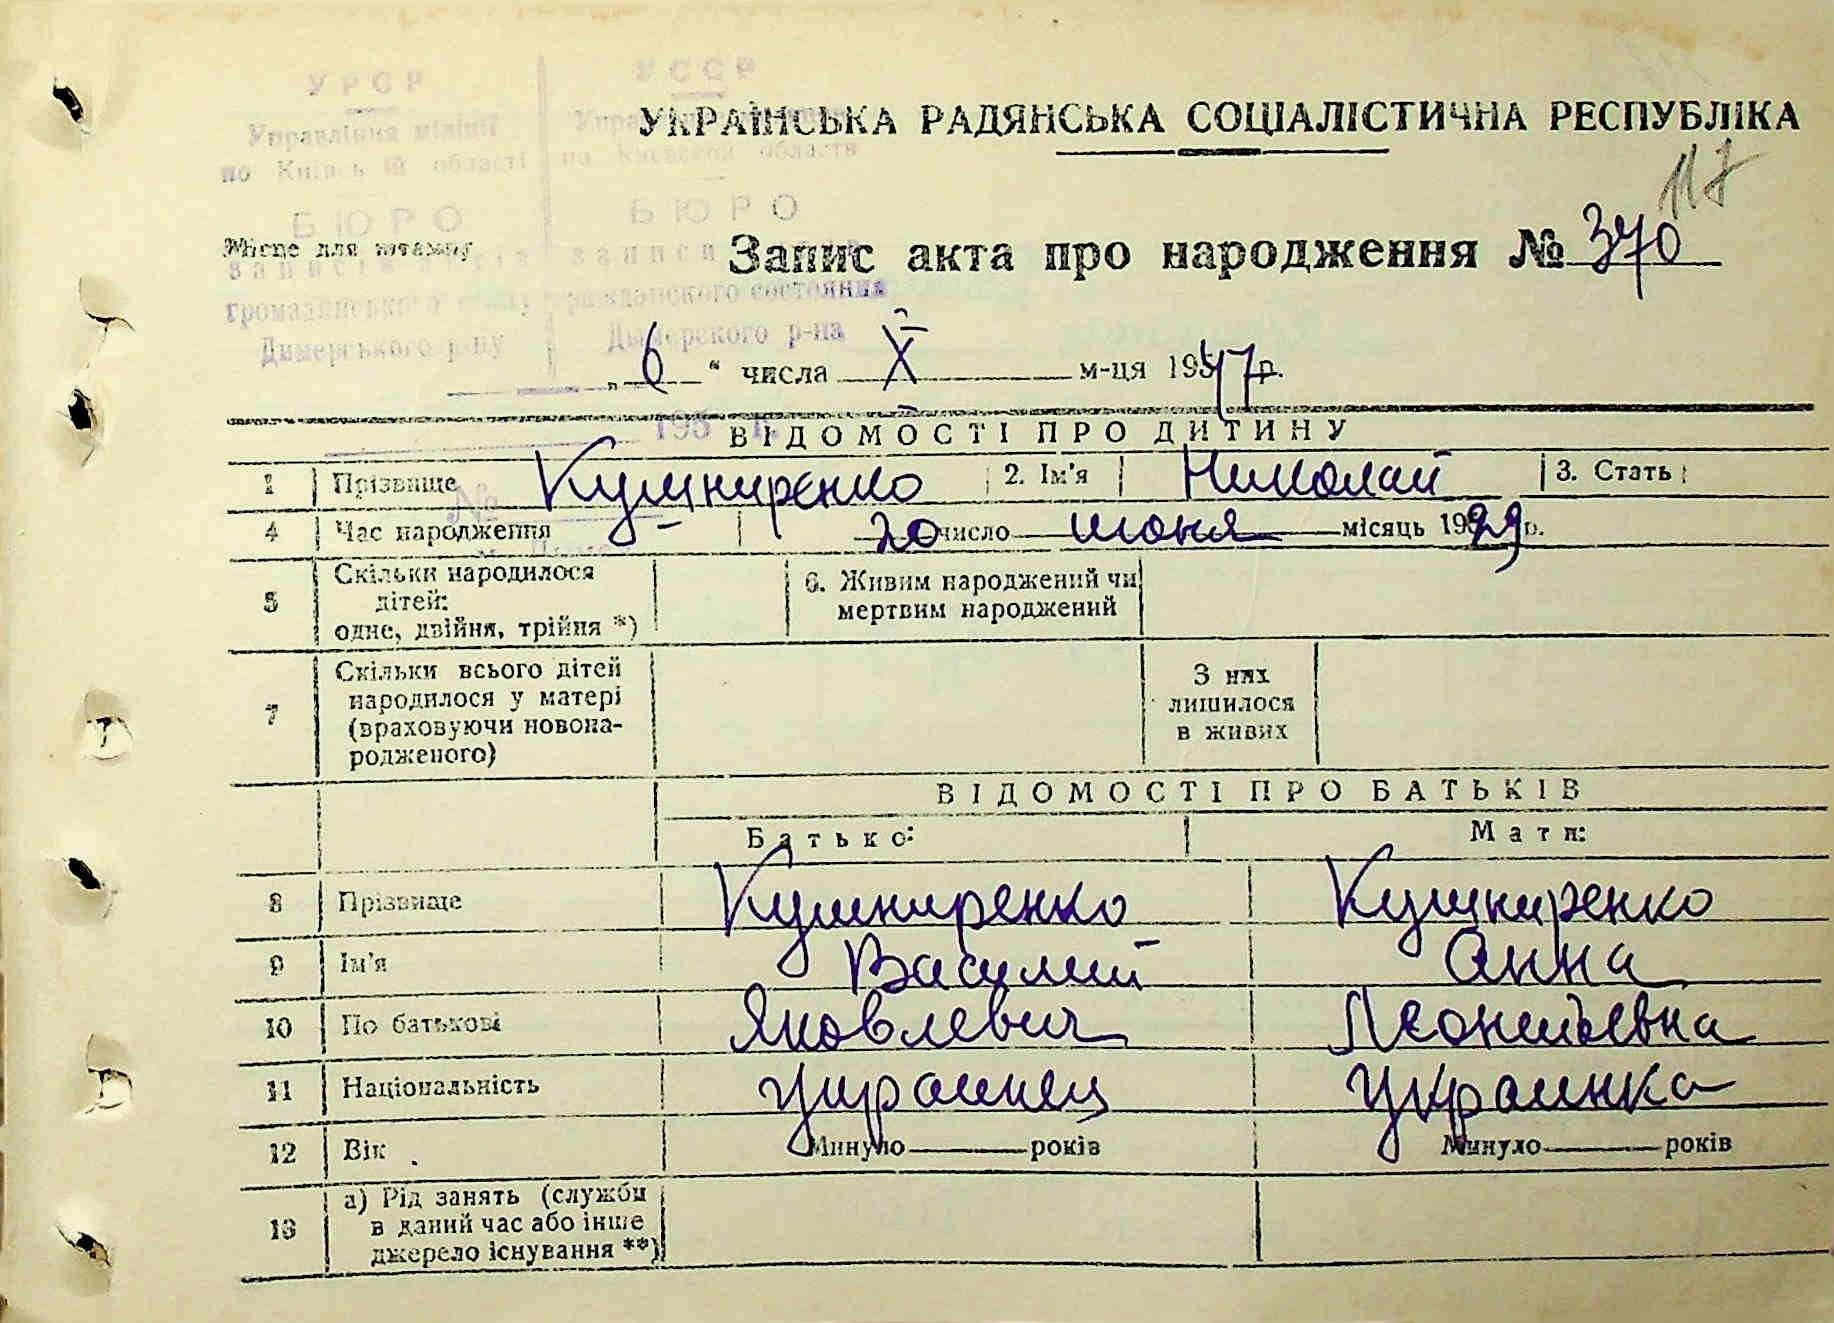 УРСР
УССР
УКРАЇНСЬКА РАДЯНСЬКА СОЦІАЛІСТИЧНА РЕСПУБЛІКА
Управління міліції
по Київській області по Киевской области
117
БЮРО БЮРО
Місце для штампу
Запис акта про народження № 370
громадянського гражданского состояния
Димерського р-ну Дымерского р-на
„ 6 “ числа X м-ця 1957 р.
195 г.
ВІДОМОСТІ ПРО ДИТИНУ
1 Прізвище Кушниренко 2. Ім'я Николай 3. Стать
№
4 Час народження 20 число июня місяць 1929 р.
5 Скільки народилося дітей: одне, двійня, трійня *)
6. Живим народжений чи мертвим народжений
7 Скільки всього дітей народилося у матері (враховуючи новонародженого)
З них лишилося в живих
ВІДОМОСТІ ПРО БАТЬКІВ
Батько: Мати:
8 Прізвище Кушниренко Кушниренко
9 Ім'я Василий Анна
10 По батькові Яковлевич Леонтьевна
11 Національність украинец украинка
12 Вік Минуло років Минуло років
13 а) Рід занять (служби в даний час або інше джерело існування **)